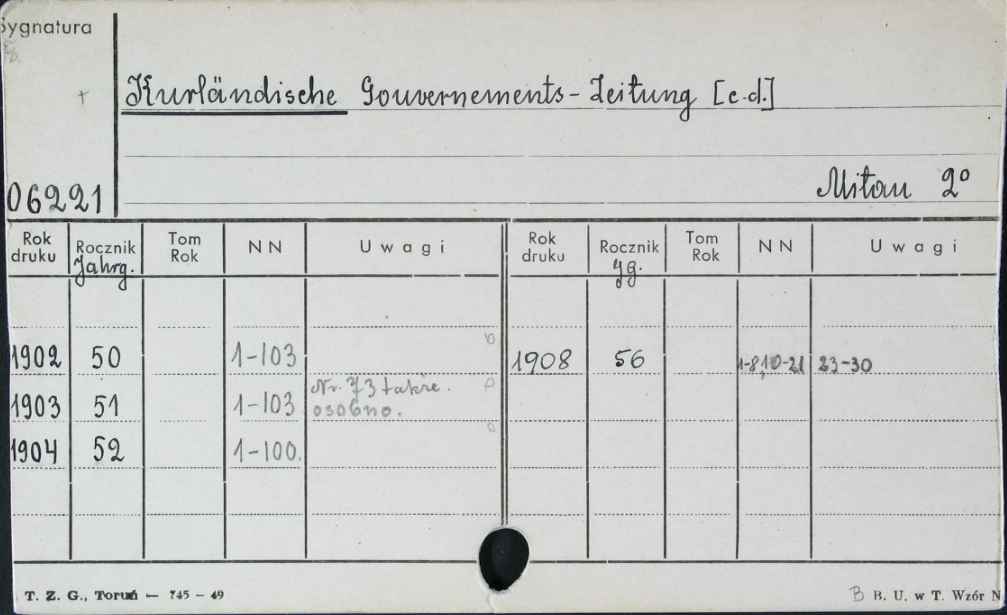 Sygnatura
Kurländische Gouvernements-Zeitung [c.d.]
06221
Mitau 2°
Rok druku Rocznik Jahrg. Tom Rok NN Uwagi Rok druku Rocznik Jg. Tom Rok NN Uwagi
1902 50 1-103 1908 56 1-8,10-21 23-30
1903 51 1-103 Nr. 73 także osobno.
1904 52 1-100.
T. Z. G., Toruń — 745 — 49
B B. U. w T. Wzór N